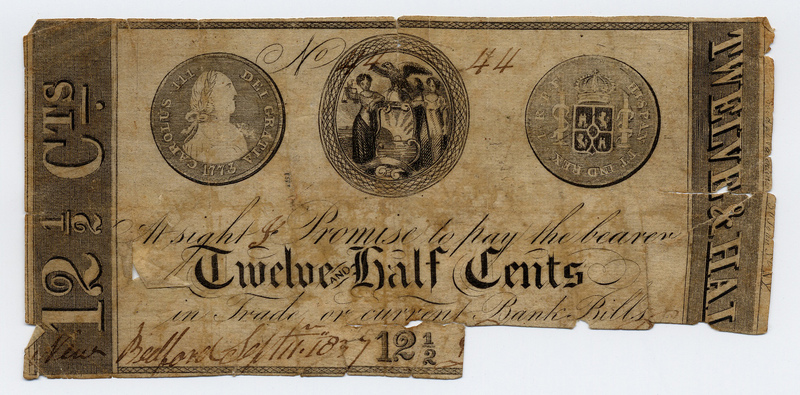 12 1/2 CTS.
No 44
CAROLUS III DEI GRATIA 1773
HISPAN ET IND REX
At sight I Promise to pay the bearer
Twelve AND Half Cents
in Trade, or current Bank Bills,
New Bedford Sept 1837 12 1/2
TWELVE & HAL